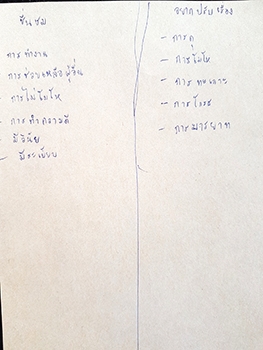 ชื่นชม
การทำงาน
การช่วยเหลือผู้อื่น
- การไม่โมโห
- การทำความดี
- มีวินัย
- มีระเบียบ
อยากปรับเรื่อง
- การดุ
- การโมโห
- การ
- การโกรธ
- การมารยาท